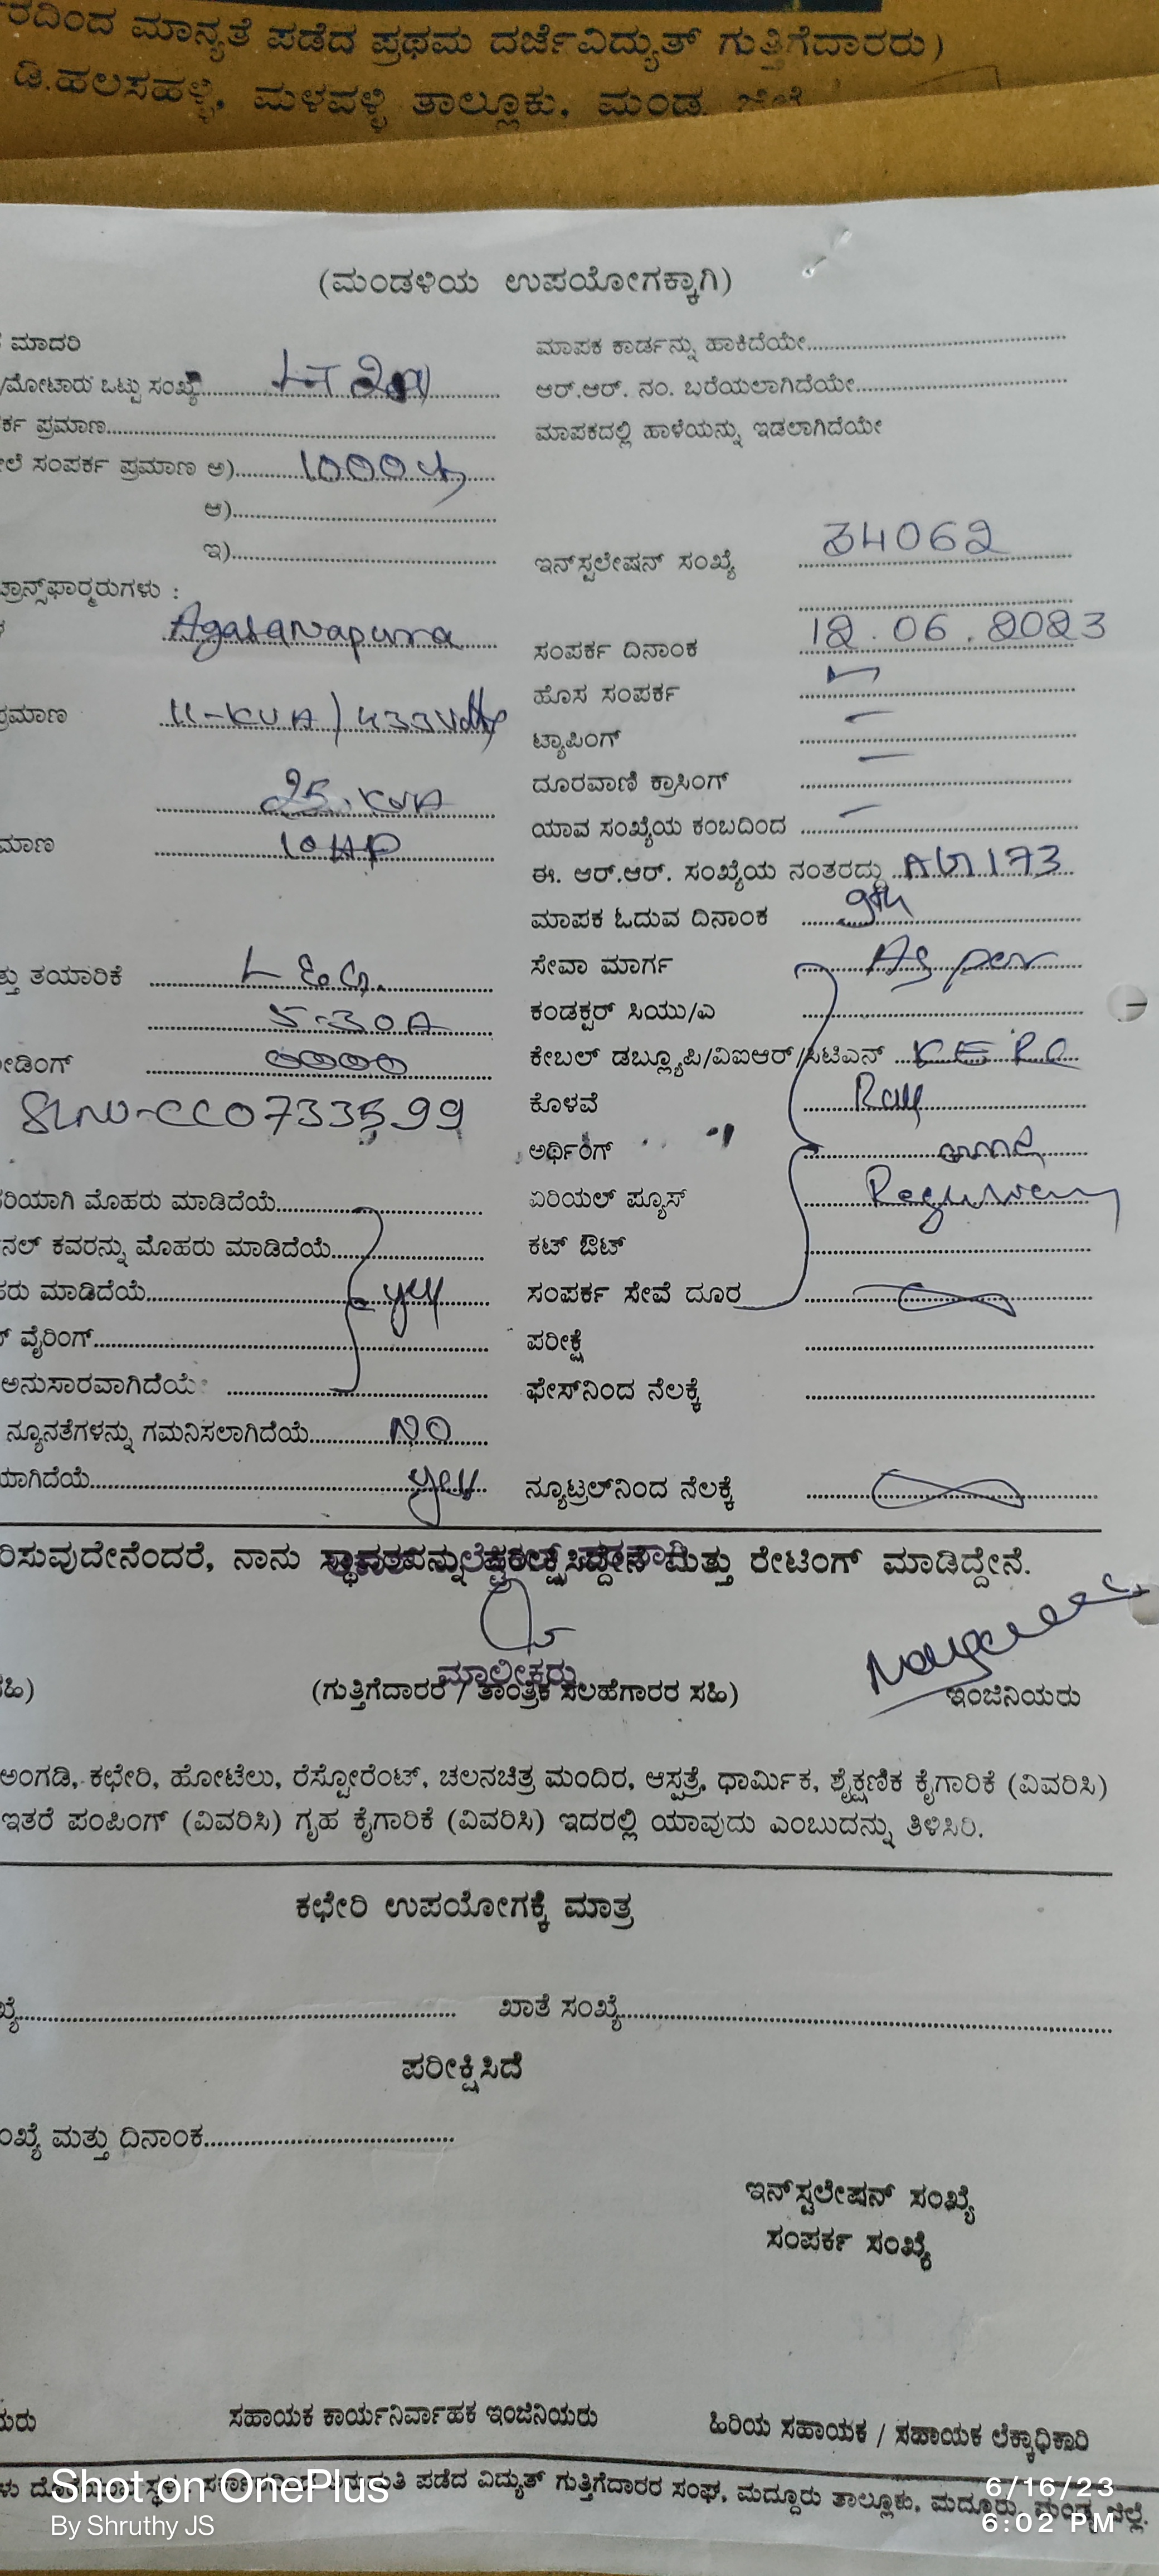 ರದಿಂದ ಮಾನ್ಯತೆ ಪಡೆದ ಪ್ರಥಮ ದರ್ಜೆವಿದ್ಯುತ್ ಗುತ್ತಿಗೆದಾರರು)
ಡಿ.ಹಲಸಹಳ್ಳಿ, ಮಳವಳ್ಳಿ ತಾಲ್ಲೂಕು, ಮಂಡ
(ಮಂಡಳಿಯ ಉಪಯೋಗಕ್ಕಾಗಿ)
ಮಾದರಿ ಮಾಪಕ ಕಾರ್ಡನ್ನು ಹಾಕಿದೆಯೇ
/ಮೋಟಾರು ಒಟ್ಟು ಸಂಖ್ಯೆ LT ಆರ್.ಆರ್. ನಂ. ಬರೆಯಲಾಗಿದೆಯೇ
ರ್ಕ ಪ್ರಮಾಣ ಮಾಪಕದಲ್ಲಿ ಹಾಳೆಯನ್ನು ಇಡಲಾಗಿದೆಯೇ
ಲೆ ಸಂಪರ್ಕ ಪ್ರಮಾಣ ಅ) 1000
ಆ)
ಇ) ಇನ್‌ಸ್ಟಲೇಷನ್ ಸಂಖ್ಯೆ 34062
ಟ್ರಾನ್ಸ್‌ಫಾರ್ಮರುಗಳು :
Agasanapura ಸಂಪರ್ಕ ದಿನಾಂಕ 12.06.2023
ಹೊಸ ಸಂಪರ್ಕ
ಪ್ರಮಾಣ 11-KVA/433Volts ಟ್ಯಾಪಿಂಗ್
25.KVA ದೂರವಾಣಿ ಕ್ರಾಸಿಂಗ್
ಮಾಣ 10HP ಯಾವ ಸಂಖ್ಯೆಯ ಕಂಬದಿಂದ
ಈ. ಆರ್.ಆರ್. ಸಂಖ್ಯೆಯ ನಂತರದ್ದು AG173
ಮಾಪಕ ಓದುವ ದಿನಾಂಕ 9th
ತ್ತು ತಯಾರಿಕೆ L&G. ಸೇವಾ ಮಾರ್ಗ As per
5-30A ಕಂಡಕ್ಟರ್ ಸಿಯು/ಎ
ೀಡಿಂಗ್ 0000 ಕೇಬಲ್ ಡಬ್ಲ್ಯೂಪಿ/ವಿಐಆರ್/ಸಿಟಿಎನ್ KERC
SLNO-CC0733599 ಕೊಳವೆ
ಅರ್ಥಿಂಗ್ and
ರಿಯಾಗಿ ಮೊಹರು ಮಾಡಿದೆಯೆ ಏರಿಯಲ್ ಪ್ಯೂಸ್
ನಲ್ ಕವರನ್ನು ಮೊಹರು ಮಾಡಿದೆಯೆ ಕಟ್ ಔಟ್
ಹರು ಮಾಡಿದೆಯೆ yes ಸಂಪರ್ಕ ಸೇವೆ ದೂರ
ವೈರಿಂಗ್ ಪರೀಕ್ಷೆ
ಅನುಸಾರವಾಗಿದೆಯೆ ಫೇಸ್‌ನಿಂದ ನೆಲಕ್ಕೆ
ನ್ಯೂನತೆಗಳನ್ನು ಗಮನಿಸಲಾಗಿದೆಯೆ NO
ಯಾಗಿದೆಯೆ yes ನ್ಯೂಟ್ರಲ್‌ನಿಂದ ನೆಲಕ್ಕೆ
ರಿಸುವುದೇನೆಂದರೆ, ನಾನು ಮತ್ತು ರೇಟಿಂಗ್ ಮಾಡಿದ್ದೇನೆ.
ಮಾಲೀಕರು
ಸಹಿ) (ಗುತ್ತಿಗೆದಾರರ / ತಾಂತ್ರಿಕ ಸಲಹೆಗಾರರ ಸಹಿ) ಇಂಜಿನಿಯರು
ಅಂಗಡಿ, ಕಛೇರಿ, ಹೋಟೆಲು, ರೆಸ್ಟೋರೆಂಟ್, ಚಲನಚಿತ್ರ ಮಂದಿರ, ಆಸ್ಪತ್ರೆ, ಧಾರ್ಮಿಕ, ಶೈಕ್ಷಣಿಕ ಕೈಗಾರಿಕೆ (ವಿವರಿಸಿ)
ಇತರೆ ಪಂಪಿಂಗ್ (ವಿವರಿಸಿ) ಗೃಹ ಕೈಗಾರಿಕೆ (ವಿವರಿಸಿ) ಇದರಲ್ಲಿ ಯಾವುದು ಎಂಬುದನ್ನು ತಿಳಿಸಿರಿ.
ಕಛೇರಿ ಉಪಯೋಗಕ್ಕೆ ಮಾತ್ರ
ಖ್ಯೆ ಖಾತೆ ಸಂಖ್ಯೆ
ಪರೀಕ್ಷಿಸಿದೆ
ಂಖ್ಯೆ ಮತ್ತು ದಿನಾಂಕ
ಇನ್‌ಸ್ಟಲೇಷನ್ ಸಂಖ್ಯೆ
ಸಂಪರ್ಕ ಸಂಖ್ಯೆ
ಯರು ಸಹಾಯಕ ಕಾರ್ಯನಿರ್ವಾಹಕ ಇಂಜಿನಿಯರು ಹಿರಿಯ ಸಹಾಯಕ / ಸಹಾಯಕ ಲೆಕ್ಕಾಧಿಕಾರಿ
ಪಡೆದ ವಿದ್ಯುತ್ ಗುತ್ತಿಗೆದಾರರ ಸಂಘ, ಮದ್ದೂರು ತಾಲ್ಲೂಕು, ಮದ್ದೂರು, ಮಂಡ್ಯ ಜಿಲ್ಲೆ.
Shot on OnePlus
By Shruthy JS
6/16/23
6:02 PM